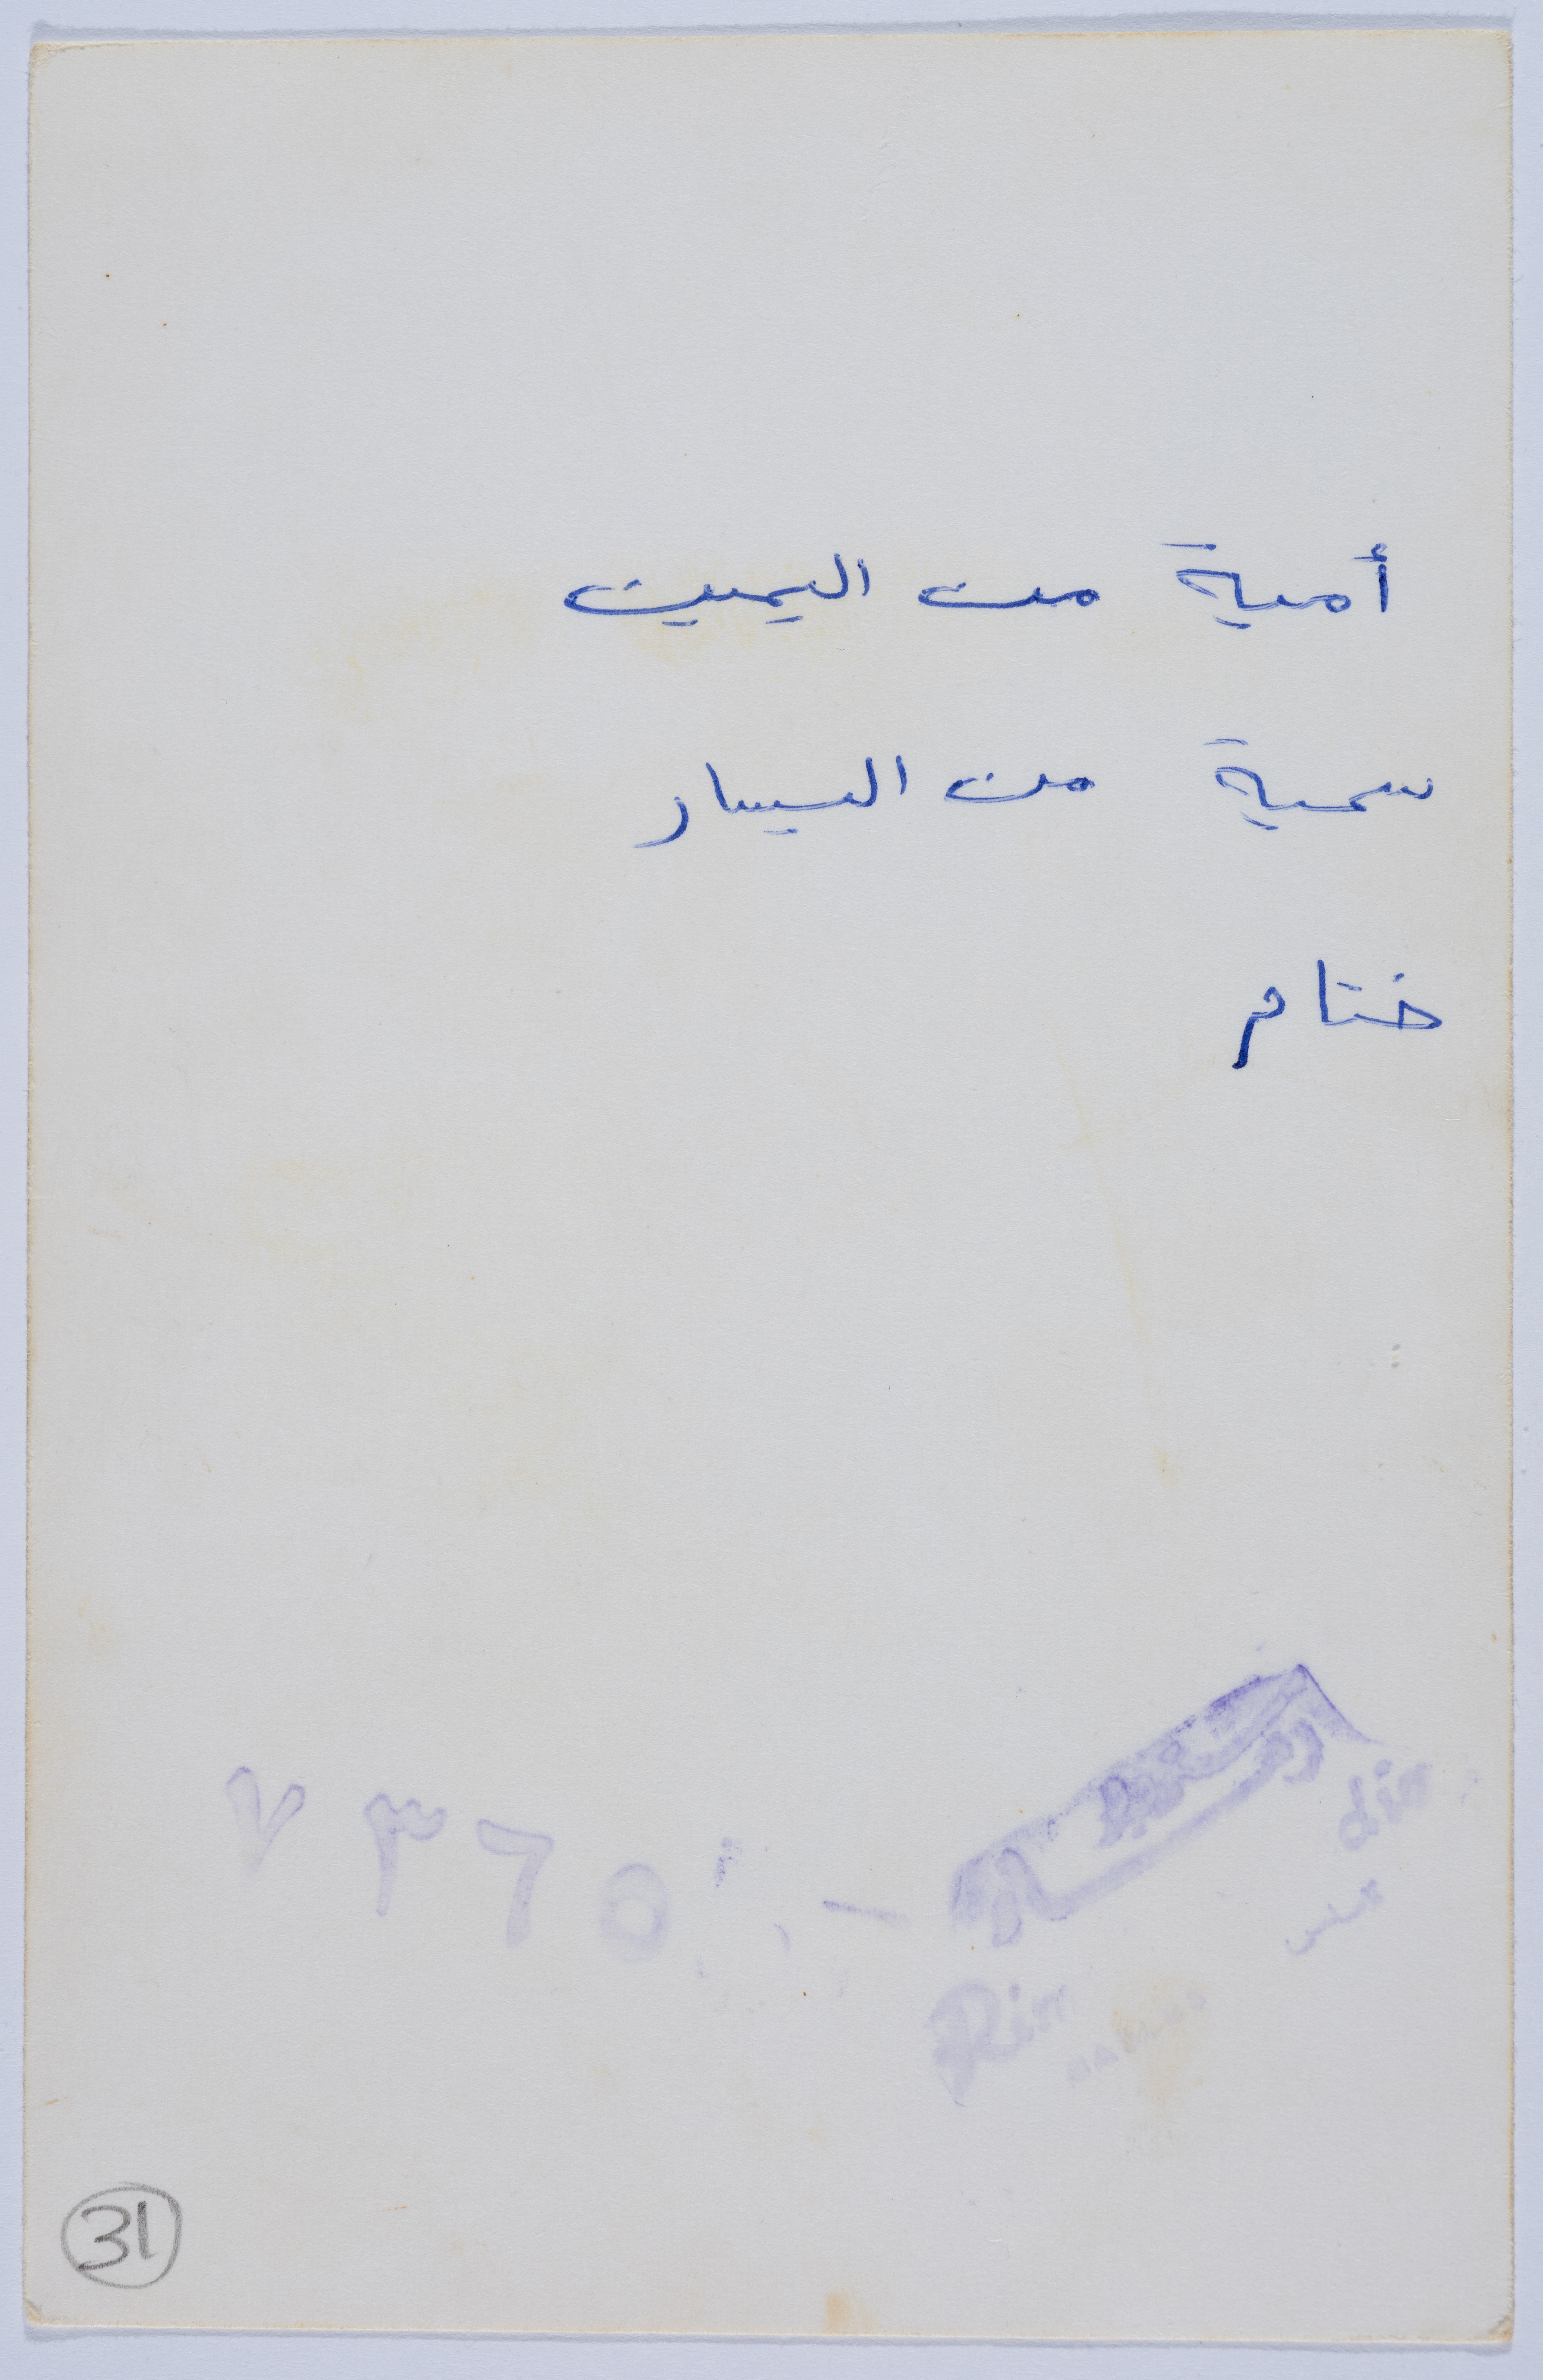 أمية من اليمين
سمية من اليسار
ختام
٧٣٦٥
31